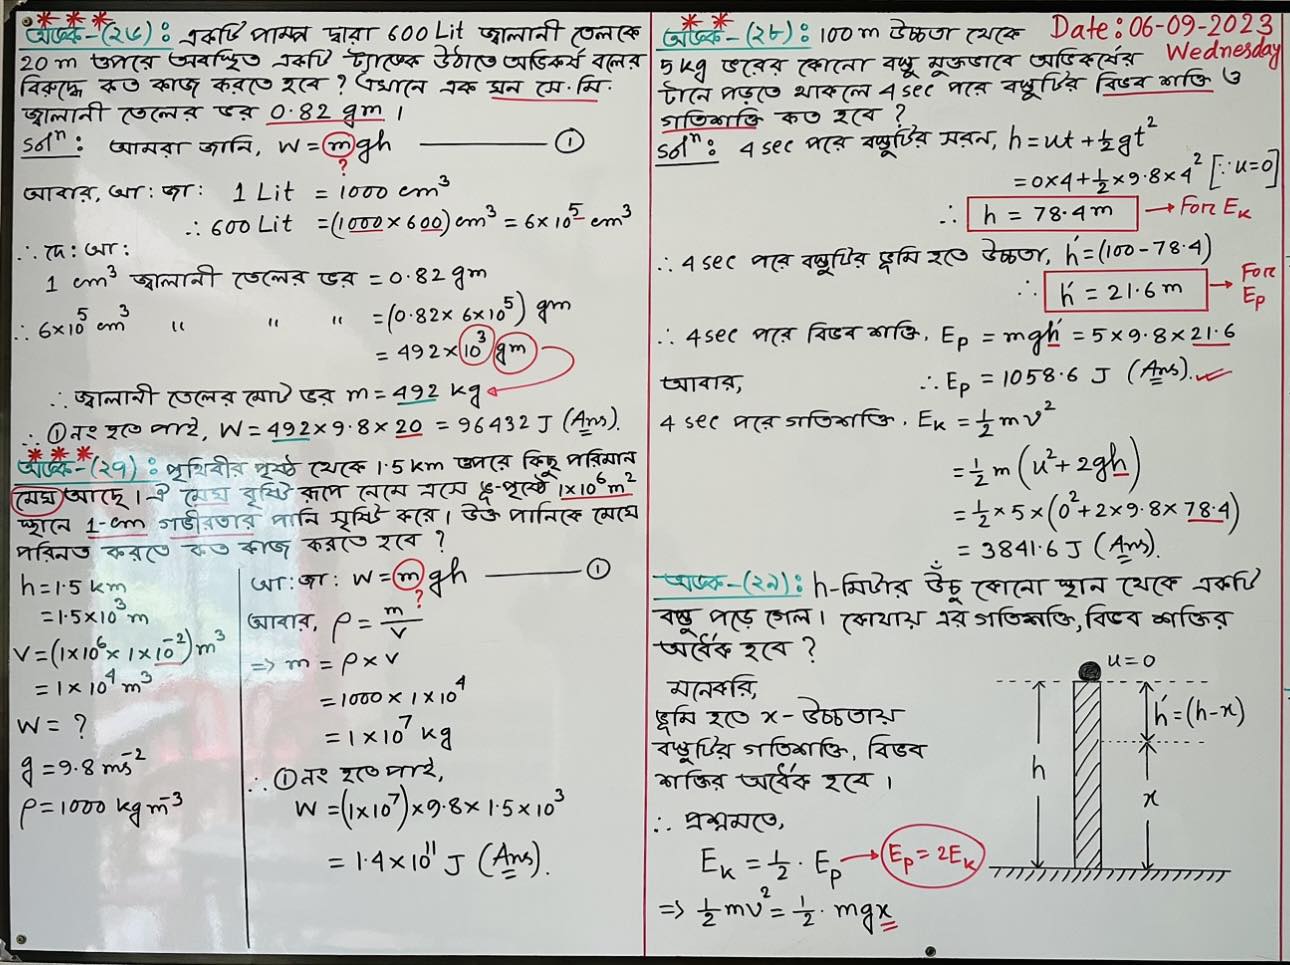 অংক-(২৬): একটি পাম্প দ্বারা 600 Lit জ্বালানী তেলকে
20 m উপরে অবস্থিত একটি ট্যাংকে উঠাতে অভিকর্ষ বলের
বিরুদ্ধে কত কাজ করতে হবে? এখানে এক ঘন সে.মি.
জ্বালানী তেলের ভর 0.82 gm।
Solⁿ: আমরা জানি, W = mgh ——— ①
?
আবার, আঃ জাঃ 1 Lit = 1000 cm³
∴ 600 Lit = (1000 × 600) cm³ = 6×10⁵ cm³
∴ দেঃ আঃ
1 cm³ জ্বালানী তেলের ভর = 0.82 gm
∴ 6×10⁵ cm³ " " " = (0.82 × 6×10⁵) gm
= 492×10³ gm
∴ জ্বালানী তেলের মোট ভর m = 492 kg
∴ ① নং হতে পাই, W = 492×9.8×20 = 96432 J (Ans).
অংক-(২৭): পৃথিবীর পৃষ্ঠ থেকে 1.5 km উপরে কিছু পরিমান
মেঘ আছে। ঐ মেঘ বৃষ্টি রূপে নেমে এসে ভূ-পৃষ্ঠে 1×10⁶ m²
স্থানে 1-cm গভীরতার পানি সৃষ্টি করে। উক্ত পানিকে মেঘে
পরিনত করতে কত কাজ করতে হবে?
h = 1.5 km
= 1.5×10³ m
V = (1×10⁶ × 1×10⁻²) m³
= 1×10⁴ m³
W = ?
g = 9.8 ms⁻²
ρ = 1000 kgm⁻³
আঃ জাঃ W = mgh ——— ①
?
আবার, ρ = m/V
⇒ m = ρ × V
= 1000 × 1×10⁴
= 1×10⁷ kg
∴ ① নং হতে পাই,
W = (1×10⁷)×9.8×1.5×10³
= 1.4×10¹¹ J (Ans).
Date: 06-09-2023
Wednesday
অংক-(২৮): 100 m উচ্চতা থেকে
5 kg ভরের কোনো বস্তু মুক্তভাবে অভিকর্ষের
টানে পড়তে থাকলে 4 sec পরে বস্তুটির বিভব শক্তি ও
গতিশক্তি কত হবে?
Solⁿ: 4 sec পরে বস্তুটির সরন, h = ut + ½gt²
= 0×4 + ½×9.8×4² [∵ u=0]
∴ h = 78.4 m → For E_k
∴ 4 sec পরে বস্তুটির ভূমি হতে উচ্চতা, h′ = (100-78.4)
∴ h′ = 21.6 m → For E_p
∴ 4 sec পরে বিভব শক্তি, E_p = mgh′ = 5×9.8×21.6
∴ E_p = 1058.6 J (Ans).
আবার,
4 sec পরে গতিশক্তি, E_k = ½ mv²
= ½ m (u² + 2gh)
= ½ × 5 × (0² + 2×9.8×78.4)
= 3841.6 J (Ans).
অংক-(২৯): h-মিটার উঁচু কোনো স্থান থেকে একটি
বস্তু পড়ে গেল। কোথায় এর গতিশক্তি, বিভব শক্তির
অর্ধেক হবে?
মনেকরি,
ভূমি হতে x-উচ্চতায়
বস্তুটির গতিশক্তি, বিভব
শক্তির অর্ধেক হবে।
∴ প্রশ্নমতে,
E_k = ½ · E_p → E_p = 2E_k
⇒ ½ mv² = ½ · mgx
u = 0
h′ = (h-x)
h
x